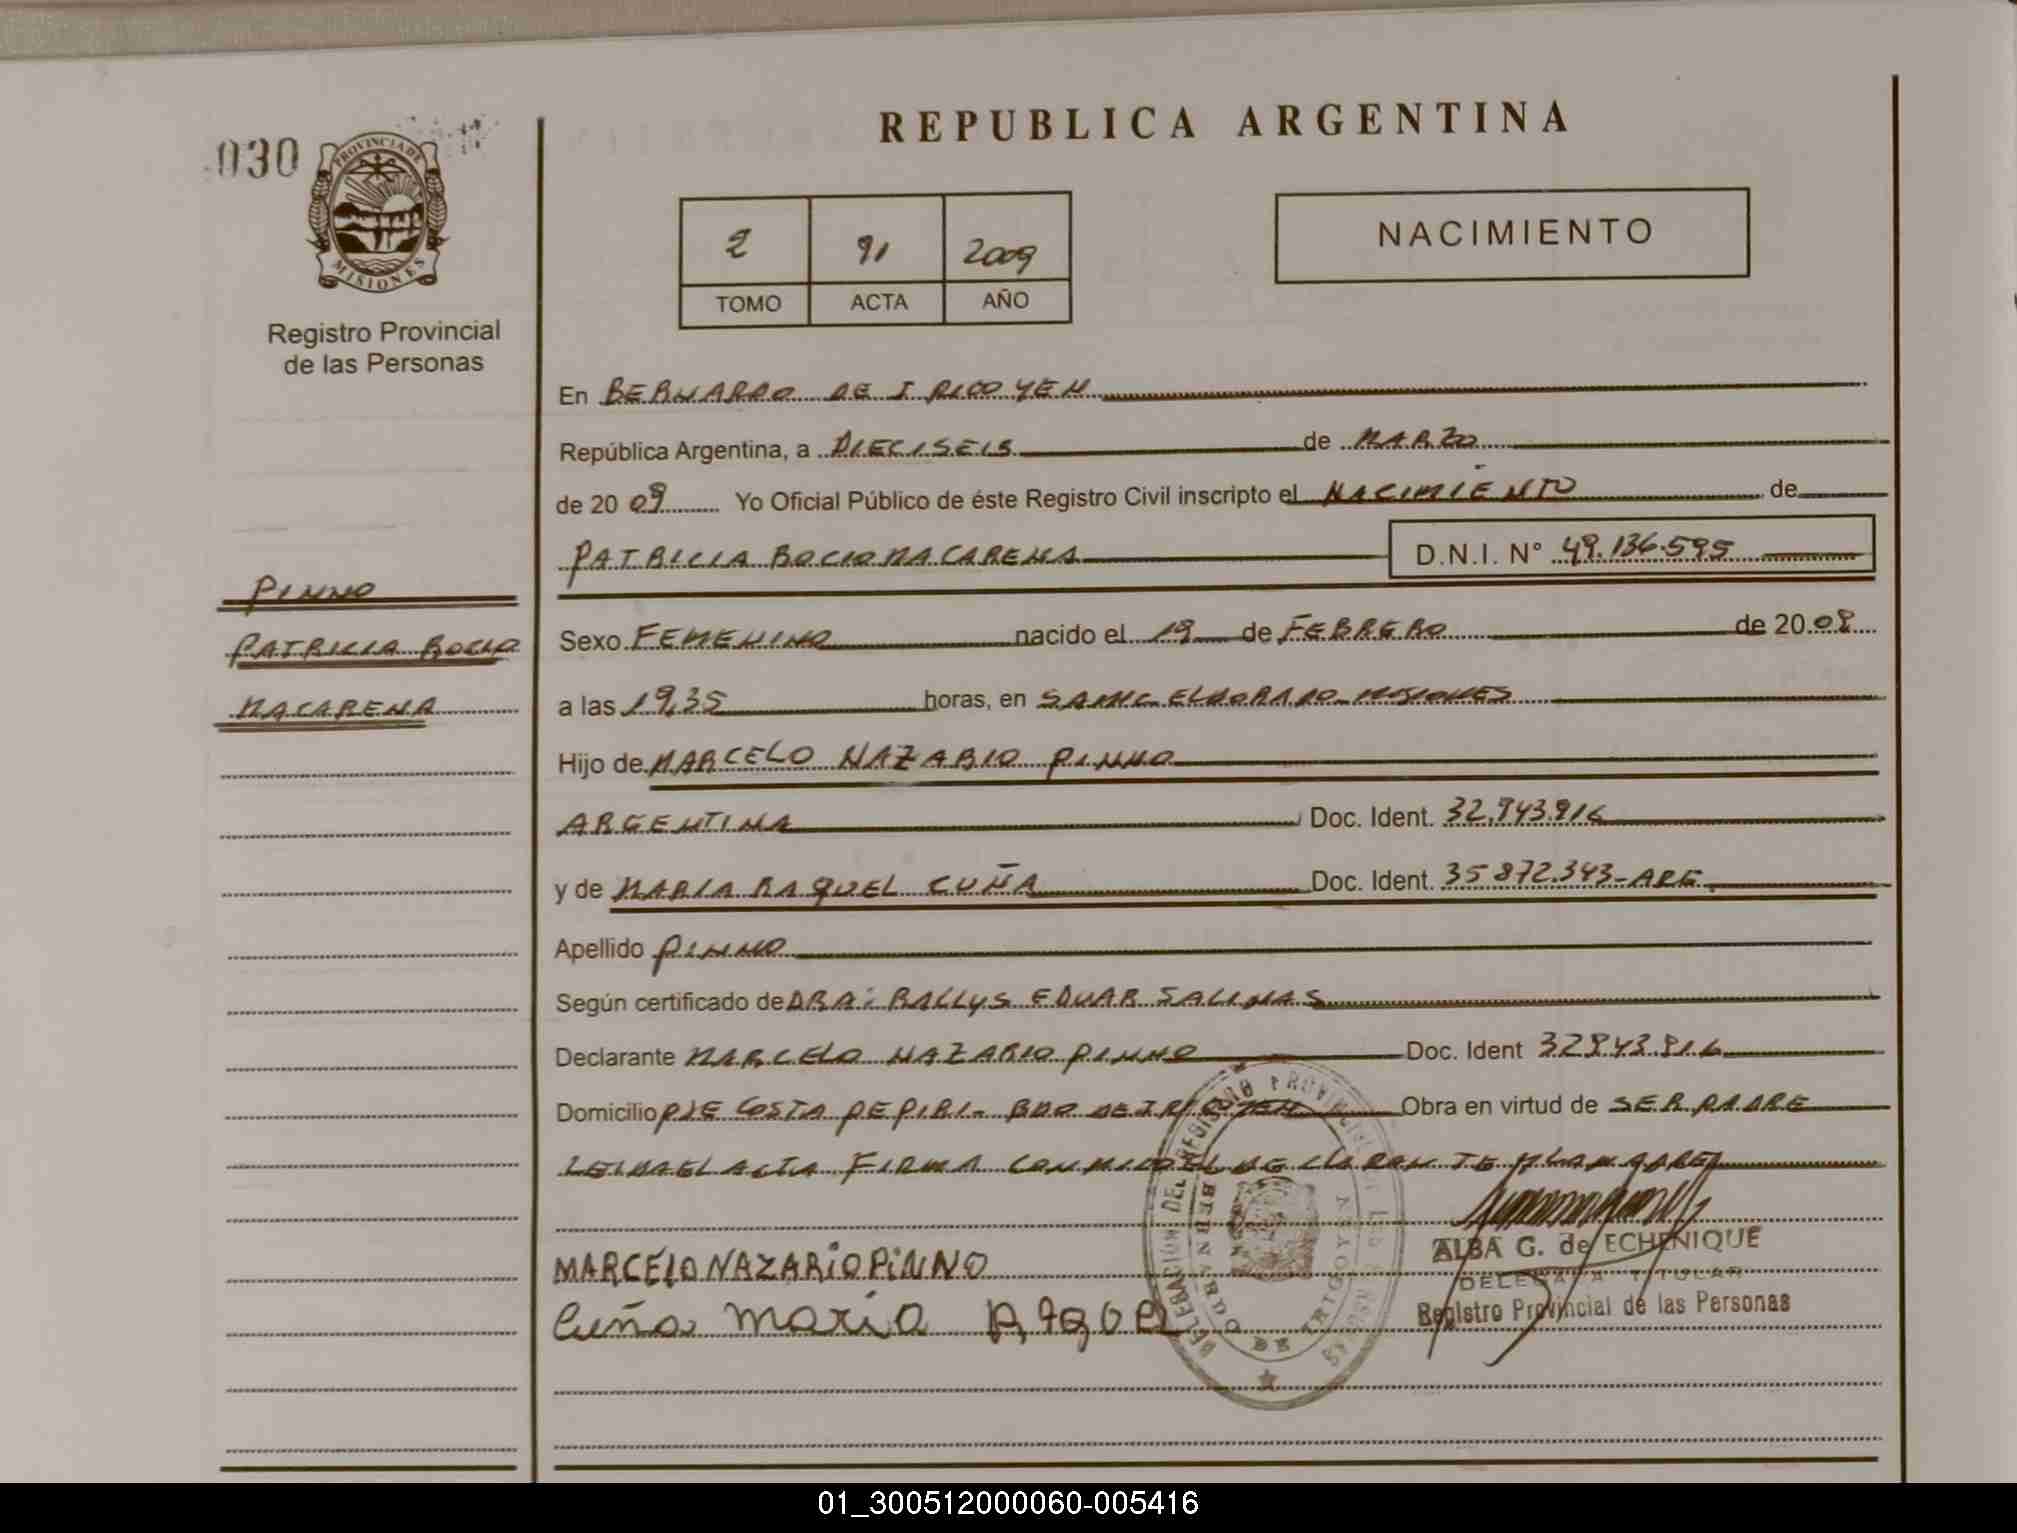 REPUBLICA ARGENTINA
030
PROVINCIA DE
MISIONES
Registro Provincial
de las Personas
2 91 2009
TOMO ACTA AÑO
NACIMIENTO
En BERNARDO DE IRIGOYEN
República Argentina, a DIECISEIS de MARZO
de 2009 Yo Oficial Público de éste Registro Civil inscripto el NACIMIENTO de
PATRICIA ROCIO MACARENA D.N.I. N° 49.136.595
PINNO
PATRICIA ROCIO
MACARENA
Sexo FEMENINO nacido el 19 de FEBRERO de 2009
a las 19,35 horas, en SAMIC ELDORADO MISIONES
Hijo de MARCELO NAZARIO PINNO
ARGENTINA Doc. Ident. 32.943.916
y de MARIA RAQUEL CUÑA Doc. Ident. 35 872.343-ARG.
Apellido PINNO
Según certificado de DRA: RALLYS EDUAR SALINAS
Declarante MARCELO NAZARIO PINNO Doc. Ident 32943916
Domicilio PJE COSTA PEPIRI- BDO DE IRIGOYEN Obra en virtud de SER PADRE
LEIDA EL ACTA FIRMA CONMIGO EL DECLARANTE
MARCELO NAZARIO PINNO
Cuña maria RAQUEL
ALBA G. de ECHENIQUE
DELEGADA TITULAR
Registro Provincial de las Personas
DELEGACION DEL REGISTRO PROVINCIAL DE LAS PERSONAS
BERNARDO DE IRIGOYEN
01_300512000060-005416